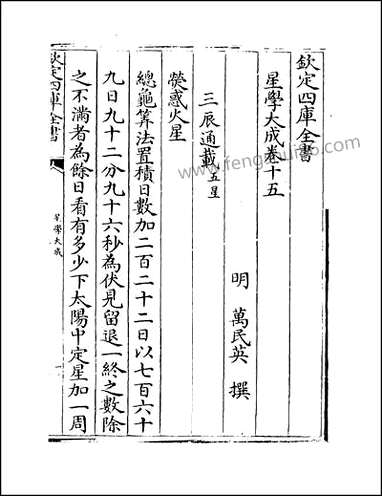 欽定四庫全書
星學大成卷十五
明 萬民英 撰
三辰通載五星
熒惑火星
總龜筭法置積日數加二百二十二日以七百六十
九日九十二分九十六秒為伏見留退一終之數除
之不滿者為餘日看有多少下太陽中定星加一周
欽定四庫全書
星學大成